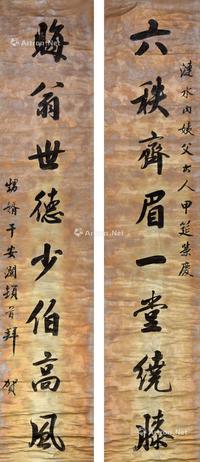 六秩齊眉一堂繞膝
漣水內姨父大人甲筵榮慶
晦翁世德少伯高風
甥婿于安瀾頓首拜賀
Artron.Net
Artron.Net